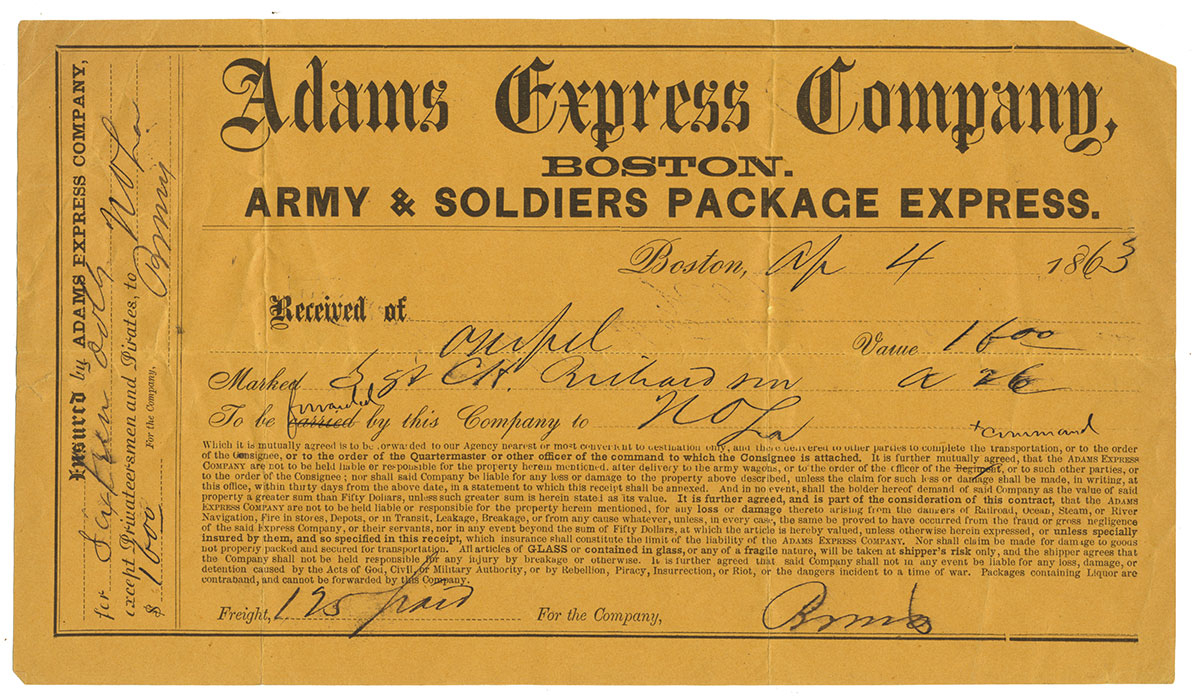 Adams Express Company,
BOSTON.
ARMY & SOLDIERS PACKAGE EXPRESS.
Boston, Ap 4 1863
Received of
Value 1600
Marked Sgt CH. Richardson A 26
forwarded
To be carried by this Company to N O La
+ command
Which it is mutually agreed is to be forwarded to our Agency nearest or most convenient to destination only, and there delivered to other parties to complete the transportation, or to the order
of the Consignee, or to the order of the Quartermaster or other officer of the command to which the Consignee is attached. It is further mutually agreed, that the ADAMS EXPRESS
COMPANY are not to be held liable or responsible for the property herein mentioned, after delivery to the army wagons, or to the order of the officer of the Regiment, or to such other parties, or
to the order of the Consignee; nor shall said Company be liable for any loss or damage to the property above described, unless the claim for such loss or damage shall be made, in writing, at
this office, within thirty days from the above date, in a statement to which this receipt shall be annexed. And in no event, shall the holder hereof demand of said Company as the value of said
property a greater sum than Fifty Dollars, unless such greater sum is herein stated as its value. It is further agreed, and is part of the consideration of this contract, that the ADAMS
EXPRESS COMPANY are not to be held liable or responsible for the property herein mentioned, for any loss or damage thereto arising from the dangers of Railroad, Ocean, Steam, or River
Navigation, Fire in stores, Depots, or in Transit, Leakage, Breakage, or from any cause whatever, unless, in every case, the same be proved to have occurred from the fraud or gross negligence
of the said Express Company, or their servants, nor in any event beyond the sum of Fifty Dollars, at which the article is hereby valued, unless otherwise herein expressed, or unless specially
insured by them, and so specified in this receipt, which insurance shall constitute the limit of the liability of the ADAMS EXPRESS COMPANY. Nor shall claim be made for damage to goods
not properly packed and secured for transportation. All articles of GLASS or contained in glass, or any of a fragile nature, will be taken at shipper's risk only, and the shipper agrees that
the Company shall not be held responsible for any injury by breakage or otherwise. It is further agreed that said Company shall not in any event be liable for any loss, damage, or
detention caused by the Acts of God, Civil or Military Authority, or by Rebellion, Piracy, Insurrection, or Riot, or the dangers incident to a time of war. Packages containing Liquor are
contraband, and cannot be forwarded by this Company.
Freight, 125 paid For the Company,
Insured by ADAMS EXPRESS COMPANY,
for only
except Privateersmen and Pirates, to N O La
$ 1600 For the Company,